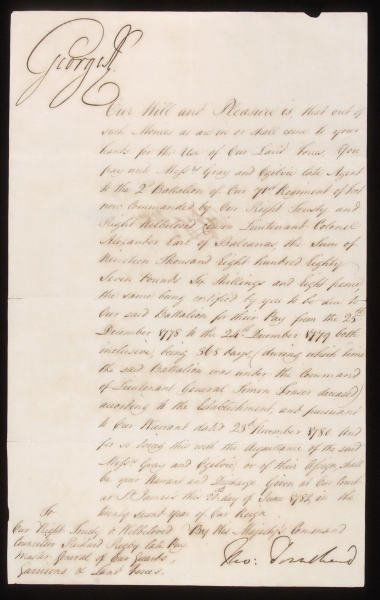 George R.
Our Will and Pleasure is, that out of
such Monies as are in or shall come to your
hands for the Use of Our Land Forces, You
pay unto Messrs. Gray and Ogilvie late Agent
to the 2d. Battalion of Our 71st Regiment of Foot
now Commanded by Our Right Trusty and
Right Welbeloved Cousin Lieutenant Colonel
Alexander Earl of Balcarras, the Sum of
Nineteen Thousand Eight hundred Eighty
Seven Pounds Six Shillings and Eight pence,
the same being certified by you to be due to
Our said Battalion for their Pay from the 25th
December 1778 to the 24th December 1779 both
inclusive, being 365 days, (during which time
the said Battalion was under the Command
of Lieutenant General Simon Fraser deceased)
according to the Establishment, and pursuant
to Our Warrant dated 28 November 1780 And
for so doing this with the Acquittance of the said
Messrs. Gray and Ogilvie, or of their Assigns shall
be your Warrant and Discharge Given at Our Court
at St. James's this day of June 1782, in the
twenty second Year of Our Reign.
By His Majesty's Command
Tho: Townshend
To
Our Right Trusty & Welbeloved
Councillor Richard Rigby late Pay
Master General of Our Guards,
Garrisons & Land Forces.